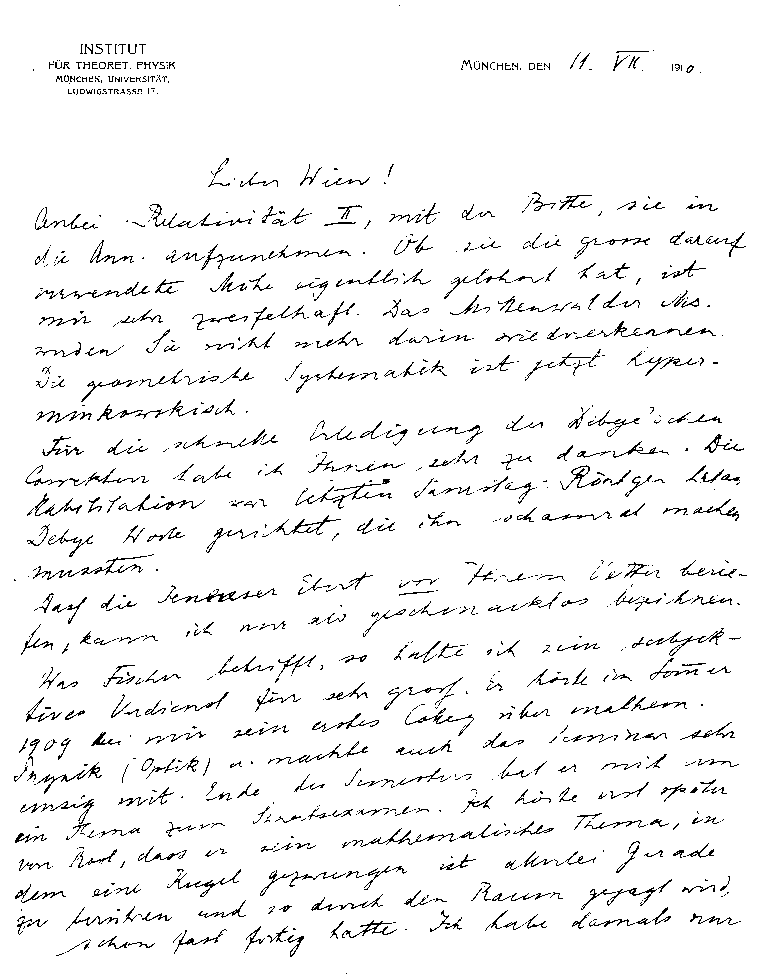 INSTITUT
FÜR THEORET. PHYSIK
MÜNCHEN, UNIVERSITÄT,
LUDWIGSTRASSE 17.
MÜNCHEN, DEN 11. VII. 1910.
Lieber Wien!
Anbei Relativität II, mit der Bitte, sie in
die Ann. aufzunehmen. Ob sie die grosse darauf
verwendete Mühe eigentlich gelohnt hat, ist
mir sehr zweifelhaft. Das Mittenwalder Ms.
werden Sie nicht mehr darin wiedererkennen.
Die geometrische Systematik ist jetzt hyper-
minkowskisch.
Für die schnelle Erledigung der Debye'schen
Correktur habe ich Ihnen sehr zu danken. Die
Habilitation war letzten Samstag. Röntgen hat an
Debye Worte gerichtet, die ihn schamrot machen
mussten.
Dass die Jenenser Ebert vor Ihrem Vetter berie-
fen, kann ich nur als geschmacklos bezeichnen.
Was Fischer betrifft, so halte ich sein subjek-
tives Verdienst für sehr gross. Er hörte im Sommer
1909 bei mir sein erstes Colleg über mathem.
Physik (Optik) u. machte auch das Seminar sehr
emsig mit. Ende des Semesters bat er mich um
ein Thema zum Staatsexamen. Ich hörte erst später
von Rost, dass er sein mathematisches Thema, in
dem eine Kugel gezwungen ist allerlei Gerade
zu berühren und so durch den Raum gejagt wird,
schon fast fertig hatte. Ich habe damals nur